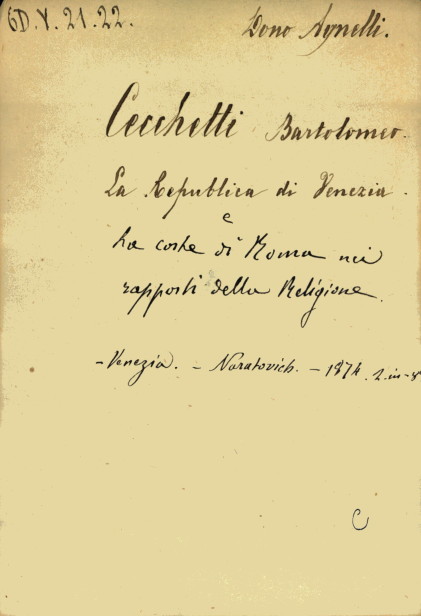 6D.V.21.22.
Dono Agnelli.
Cecchetti Bartolomeo.
La Republica di Venezia.
e
la corte di Roma nei
rapporti della Religione.
- Venezia. - Naratovich. - 1874. 2. in-8
C